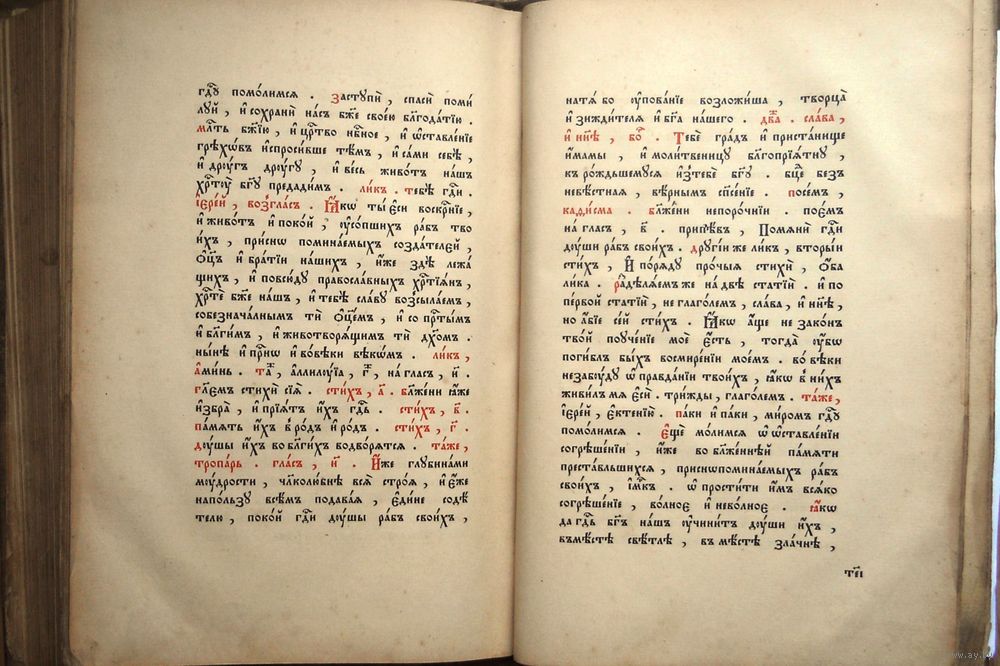 гдⷭ҇у помо́лимсѧ . Заступѝ , спасѝ поми
лꙋй , и҆ сохранѝ на́съ бж҃е свое́ю бл҃года́тїю .
мл҃ть бж҃їю , и҆ црⷭ҇тво нбⷭ҇ное , и҆ ѡ҆ставле́нїе
грѣхѡ́въ и҆спроси́вше тѣ́мъ , и҆ са́ми себѐ ,
и҆ дрꙋ́гъ дрꙋ́гꙋ , и҆ ве́сь живо́тъ на́шъ
хрⷭ҇тꙋ̀ бг҃ꙋ предади́мъ . ли́къ . тебѣ̀ гдⷭ҇и .
і҆ере́й , во́згласъ . Ꙗ҆́кѡ ты̀ є҆сѝ воскрⷭ҇нїе ,
и҆ живо́тъ и҆ поко́й , ᲂу҆со́пшихъ ра́бъ тво
и́хъ , при́снѡ помина́емыхъ созда́телей ,
ѻ҆ц҃ъ и҆ бра́тїи на́шихъ , и҆́же здѣ̀ лежа́
щихъ , и҆ повсю́дꙋ правосла́вныхъ хрⷭ҇тїѧ́нъ ,
хрⷭ҇тѐ бж҃е на́шъ , и҆ тебѣ̀ сла́вꙋ возсыла́емъ ,
собезнача́льнымъ тѝ ѻ҆ц҃е́мъ , и҆ со прⷭ҇ты́мъ
и҆ бл҃ги́мъ , и҆ животворѧ́щимъ тѝ дх҃омъ .
ны́нѣ и҆ прⷭ҇нѡ и҆ во́вѣки вѣкѡ́мъ . ли́къ ,
а҆ми́нь . та́ , а҆ллилꙋ́їѧ , г҃ , на гла́съ , и҃ .
гл҃емъ стихѝ сїѧ̀ . сти́хъ , а҃ . бл҃же́ни ꙗ҆̀же
и҆збра̀ , и҆ прїѧ́тъ и҆̀хъ гдⷭ҇ь . сти́хъ , в҃ .
па́мѧть и҆́хъ в ро́дъ и҆ ро́дъ . сти́хъ , г҃ .
дꙋ́шы и҆́хъ во бл҃ги́хъ водворѧ́тсѧ . та́же ,
тропа́рь . гла́съ , и҃ . И҆́же глꙋбина́ми
мꙋ́дрости , чл҃колю́бнѣ всѧ̀ стро́ѧ , и҆ є҆́же
напо́льзꙋ всѣ́мъ подава́ѧ , є҆ди́не содѣ́
телю , поко́й гдⷭ҇и дꙋ́шы ра́бъ свои́хъ ,
натѧ̀ бо ᲂу҆пова́нїе возложи́ша , творца̀
и҆ зижди́телѧ и҆ бг҃а на́шего . два́ . сла́ва ,
и҆ нн҃ѣ , бо́ . Тебѐ гра́дъ и҆ приста́нище
и҆́мамы , и҆ моли́твеницꙋ бл҃гопрїѧ́тнꙋ ,
къ ро́ждьшемꙋсѧ и҆зтебѐ бг҃ꙋ . бц҃е безъ
невѣ́стнаѧ , вѣ́рнымъ сп҃се́нїе . посе́мъ ,
каѳи́сма . бл҃же́ни непоро́чнїи . пое́мъ
на гла́съ , в҃ . припѣ́въ , Помѧнѝ гдⷭ҇и
дꙋ́ши ра́бъ свои́хъ . дрꙋгі́и же ли́къ , вторы́и
сти́хъ , И҆ по́рѧдꙋ про́чыѧ стихѝ , ѻ҆́ба
ли́ка . раздѣлѧ́емъ же на двѐ статїѝ . и҆ по
пе́рвой статїѝ , не глаго́лемъ , сла́ва , и҆ нн҃ѣ ,
но а҆́бїе се́й сти́хъ . Ꙗ҆́кѡ а҆́ще не зако́нъ
тво́й поꙋче́нїе моѐ є҆́сть , тогда̀ ᲂу҆́бѡ
поги́блъ бы́хъ восмире́нїи мое́мъ . во́ вѣки
незабꙋ́дꙋ ѡ҆правда́нїи твои́хъ , ꙗ҆́кѡ в ни́хъ
живи́лъ мѧ̀ є҆сѝ . три́жды , глаго́лемъ . та́же ,
і҆ере́й , є҆ктенїю̀ . па́ки и҆ па́ки , ми́ромъ гдⷭ҇ꙋ
помо́лимсѧ . Є҆щѐ мо́лимсѧ ѡ҆ ѡ҆ставле́нїи
согрѣше́нїи , и҆́же во бл҃же́ннѣй па́мѧти
преста́вльшихсѧ , приснѡпомина́емыхъ ра́бъ
свои́хъ , и҆мⷬ҇къ . ѡ҆ прости́ти и҆̀мъ всѧ́ко
согрѣше́нїе , во́лное и҆ нево́лное . ꙗ҆́кѡ
да гдⷭ҇ь бг҃ъ на́шъ ᲂу҆чини́тъ дꙋ́ши и҆́хъ ,
въмѣ́стѣ свѣ́тлѣ , въ мѣ́стѣ зла́чнѣ ,
тѕ҃і